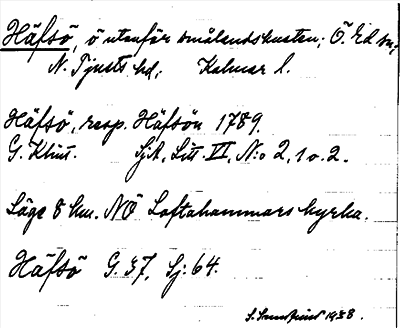 Häfsö, ö utanför smålandskusten; Ö. Ed sn;
N. Tjusts hd; Kalmar l.
Häfsö, resp. Häfsön 1789.
G. Klint. SjA, Litt. VI, N:o 2, 1 o. 2.
Läge 8 km. NÖ Loftahammars kyrka.
Häfsö G. 37, Sj. 64.
S. 1938.